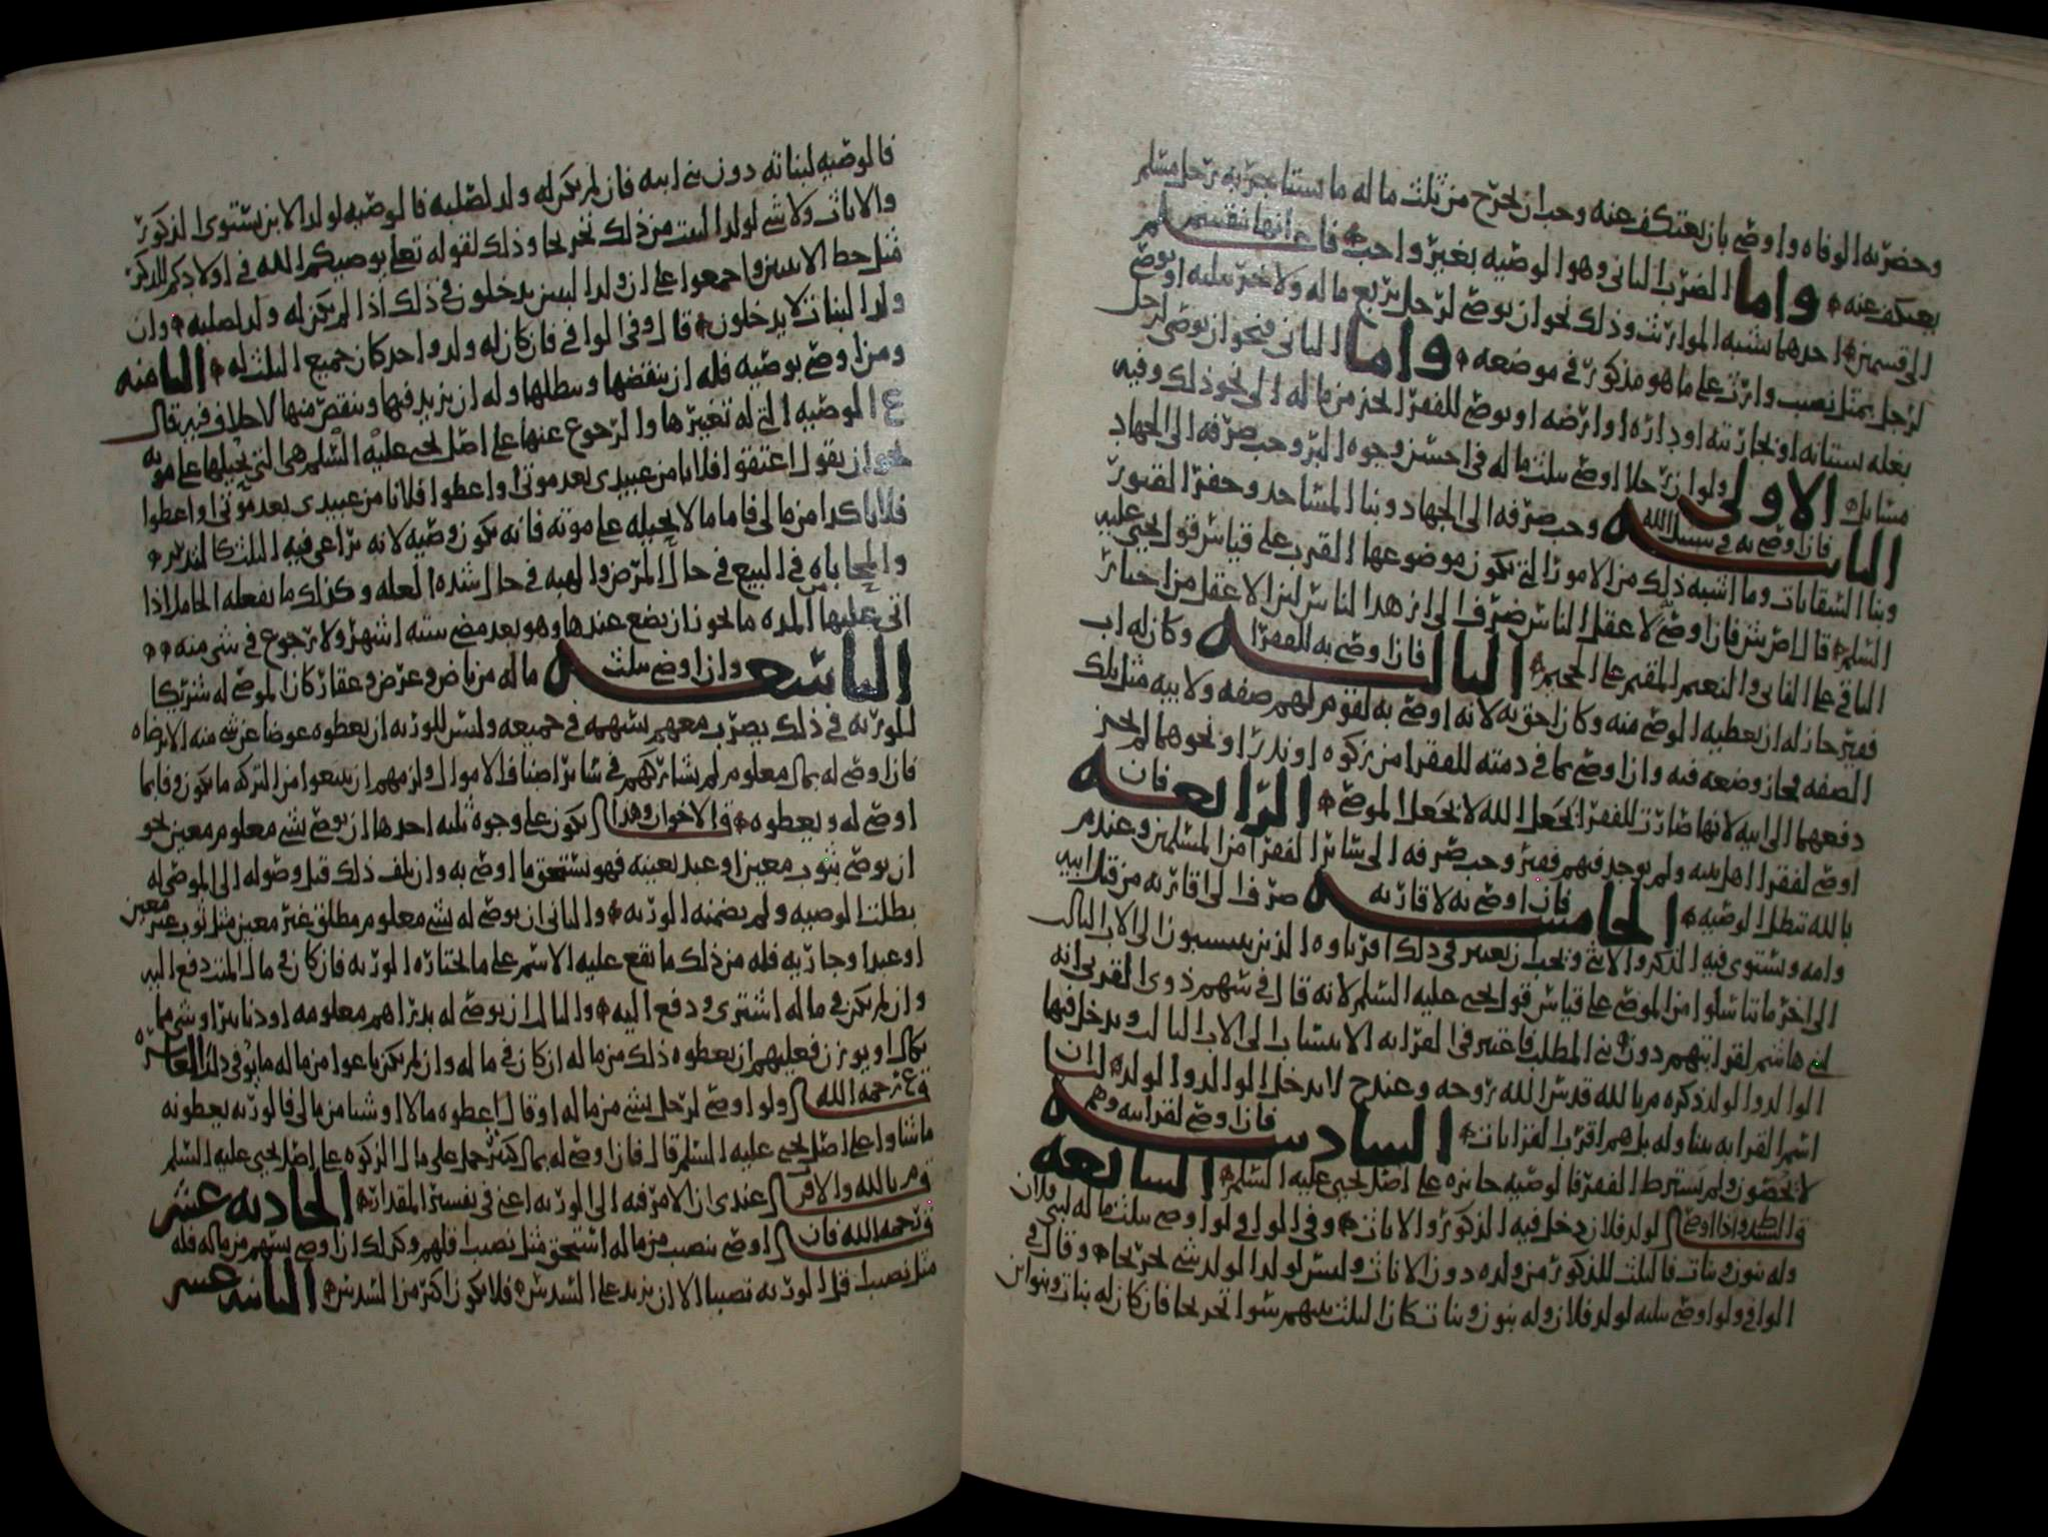 وحضرته الوفاه واوصى بان يعتكف عنه وجب ان يخرج من ثلث ماله ما يستاجر به رجل مسلم
يعتكف عنه واما الضرب الثاني وهو الوصيه بغير واجب فانها تنقسم
الى قسمين احدهما يشبه المواريث وذلك نحو ان يوصي لرجل بربع ماله ولاخر بثلثه او يوصي
لرجل بمثل نصيب وارث على ما هو مذكور في موضعه واما الثاني فنحو ان يوصي لرجل
بغله بستانه او تجارته او داره او ارضه او يوصي للفقرا بجز من ماله الى نحو ذلك وفيه
مسايل الاولى ولو ان رجلا اوصى بثلث ماله في احسن وجوه البر وجب صرفه الى الجهاد
الثانيه فان اوصى به في سبيل الله وجب صرفه الى الجهاد وبنا المساجد وحفر القبور
وبنا السقايات وما اشبه ذلك من الامور التي يكون موضوعها القرب على قياس قول يحيى عليه
السلم قال فان اوصى لاعقل الناس صرف الى ازهد الناس لان الاعقل من اختار
الباقي على الفاني والنعيم المقيم على الجحيم الثالثه فان اوصى به للفقرا وكان له اب
فقير جاز له ان يعطيه الموصى منه وكان احق به لانه اوصى به لقوم لهم صفه ولابيه مثل تلك
الصفه فجاز وضعه فيه وان اوصى بما في ذمته للفقرا من زكوه او نذر او نحوهما لم يجز
دفعها الى ابيه لانها صارت للفقرا بجعل الله لا بجعل الموصي الرابعه فان
اوصى لفقرا اهل بيته ولم يوجد فيهم فقير وجب صرفه الى سائر الفقرا من المسلمين وعند م
بالله تبطل الوصيه الخامسه فان اوصى به لاقاربه صرف الى اقاربه من قبل ابيه
وامه ويستوي فيه الذكر والانثى ويجب ان يعتبر في ذلك اقرباوه الذين ينتسبون الى الاب الثالث
الى اخر ما تناسلوا من الموصي على قياس قول يحيى عليه السلم لانه قال في سهم ذوي القربى انه
لبني هاشم لقرابتهم دون بني المطلب فاعتبر في القرابه الانتساب الى الاب الثالث ويدخل فيها
الوالد والولد ذكره م بالله قدس الله روحه وعند ح لا يدخل الوالد والولد لنا ان
اسم القرابه يتناوله بل هم اقرب القرابات السادسه فان اوصى لقرابته وهم
لا يحصون ولم يشترط الفقر فالوصيه جائزه على اصل يحيى عليه السلم السابعه
قال السيد واذا اوصى لولد فلان دخل فيه الذكور والاناث وفي الوافي ولو اوصى بثلث ماله لبني فلان
وله بنون وبنات فالثلث للذكور من ولده دون الاناث وليس لولد الولد شي تخريجا وقال في
الوافي ولو اوصى بثلثه لولد فلان وله بنون وبنات كان الثلث بينهم سوا تخريجا فان كان له بنات وبنو ابن
فالوصيه لبناته دون بني ابنه فان لم يكن له ولد لصلبه فالوصيه لولد الابن يستوي الذكور
والاناث ولا شي لولد البنت من ذلك تخريجا وذلك لقوله تعلى يوصيكم الله في اولادكم للذكر
مثل حظ الانثيين واجمعوا على ان ولد البنين يدخلون في ذلك اذا لم يكن له ولد لصلبه وان
ولد البنات لا يدخلون قال وفي الوافي فان كان له ولد واحد كان جميع الثلث له الثامنه
ومن اوصى بوصيه فله ان ينقضها ويبطلها وله ان يزيد فيها وينقص منها لا خلاف فيه قال
ع الوصيه التي له تغييرها والرجوع عنها على اصل يحيى عليه السلم هي التي يحيلها على موته
نحو ان يقول اعتقوا فلانا من عبيدي بعد موتي واعطوا فلانا من عبيدي بعد موتي واعطوا
فلانا كذا من مالي فاما ما لا يحيله على موته فانه يكون وصيه لانه يراعى فيه الثلث كالتدبير
والمحاباه في البيع في حال المرض والهبه في حال شده العله وكذلك ما يفعله الحامل اذا
اتى عليها المده ما يجوز ان يضع عندها وهو بعد مضي سته اشهر ولا رجوع في شي منه
التاسعه وان اوصى بثلث ماله من ناض وعرض وعقار كان الموصى له شريكا
للورثه في ذلك يضرب معهم بسهمه في جميعه وليس للورثه ان يعطوه عوضا عن شي منه الا برضاه
فان اوصى له بمال معلوم لم يشاركهم في سائر اصناف الاموال ولزمهم ان يبيعوا من التركه ما يكون وفا بما
اوصى له ويعطوه قال الاخوان وهذا يكون على وجوه ثلثه احدها ان يوصي بشي معلوم معين نحو
ان يوصي بثوب معين او عبد بعينه فهو يستحق ما اوصى به وان تلف ذلك قبل وصوله الى الموصى له
بطلت الوصيه ولم يضمنه الورثه والثاني ان يوصي له بشي معلوم مطلق غير معين مثل ثوب غير معين
او عبد او جاريه فله من ذلك ما يقع عليه الاسم على ما يختاره الورثه فان كان في مال الميت دفع اليه
وان لم يكن في ماله اشتري ودفع اليه والثالث ان يوصي له بدراهم معلومه او دنانير او شي مما
يكال او يوزن فعليهم ان يعطوه ذلك من ماله ان كان في ماله وان لم يكن باعوا من ماله ما يوفي ذلك العاشره
قال رحمه الله ولو اوصى لرجل بشي من ماله او قال اعطوه مالا او شيا من مالي فالورثه يعطونه
ما شاوا على اصل يحيى عليه السلم قال فان اوصى له بمال كثير حمل على مال الزكوه على اصل يحيى عليه السلم
قال م بالله والاقرب عندي ان الامر فيه الى الورثه اعني في تفسير المقدار الحاديه عشر
قال رحمه الله فان اوصى بنصيب من ماله استحق مثل نصيب اقلهم وكذلك ان اوصى بسهم من ماله فله
مثل نصيب اقل الورثه نصيبا الا ان يزيد على السدس فلا يكون اكثر من السدس الثانيه عشر